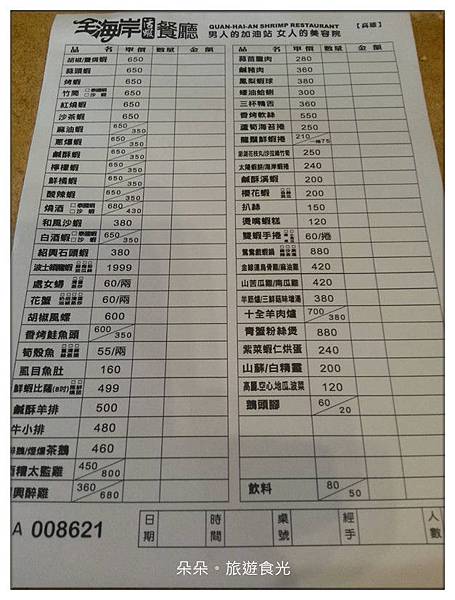 全海岸活蝦餐廳
QUAN-HAI-AN SHRIMP RESTAURANT
男人的加油站 女人的美容院
【高雄】
品名 單價 數量 金額
胡椒/鹽焗蝦 650
蒜頭蝦 650
烤蝦 650
竹筒 泰國蝦 沙蝦 650
紅燒蝦 650
沙茶蝦 650
麻油蝦 650/350
蔥爆蝦 650/350
鹹酥蝦 650/350
檸檬蝦 650/350
鮮橋蝦 650/350
酸辣蝦 650/350
燒酒 泰國蝦 沙蝦 680/430
和風沙蝦 380
白酒蝦 泰國蝦 沙蝦 650/350
紹興石頭蝦 380
波士頓龍蝦 1999
處女蟳 60/兩
花蟹 60/兩
胡椒鳳螺 600
香烤鮭魚頭 600/350
筍殼魚 55/兩
虱目魚肚 160
鮮蝦比薩(8吋) 499
鹹酥羊排 500
牛小排 480
茶鵝 460
酒糟太監雞 450/800
興醉雞 360/680
品名 單價 數量 金額
蒜苗臘肉 280
鹹豬肉 360
鳳梨蝦球 380
蠔油蛤蜊 300
三杯精舌 360
香烤軟絲 550
蘆筍海苔捲 250
龍鬚鮮蝦捲 210/一捲75
澎湖花枝丸/沙拉綠竹筍 250
太陽蝦餅/海岸蝦捲 240
鹹酥溪蝦 200
櫻花蝦 200
扒絲 150
燙嘴蝦糕 120
雙蝦手捲 60/捲
鴛鴦戲蝦鍋 880
金線蓮烏骨雞/麻油雞 420
山苦瓜雞/南瓜雞 420
羊肥爐/三鮮菇味增湯 380
十全羊肉爐 700/380
青蟹粉絲煲 880
紫菜蝦仁烘蛋 240
山蘇/白精靈 200
高麗.空心.地瓜.波菜 120
鵝頭腳 60/20
飲料 80/50
A 008621
日期 時間 桌號 經手 人數
朵朵。旅遊食光